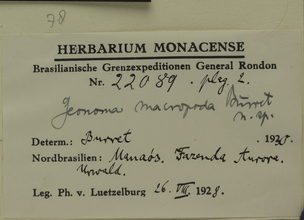 78
HERBARIUM MONACENSE
Brasilianische Grenzexpeditionen General Rondon
Nr. 22089. pleg 2.
Geonoma macropoda Burret
n. sp.
Determ.: Burret . 1930.
Nordbrasilien: Manaós. Fazenda Aurora.
Urwald.
Leg. Ph. v. Luetzelburg 26. VIII. 1928.